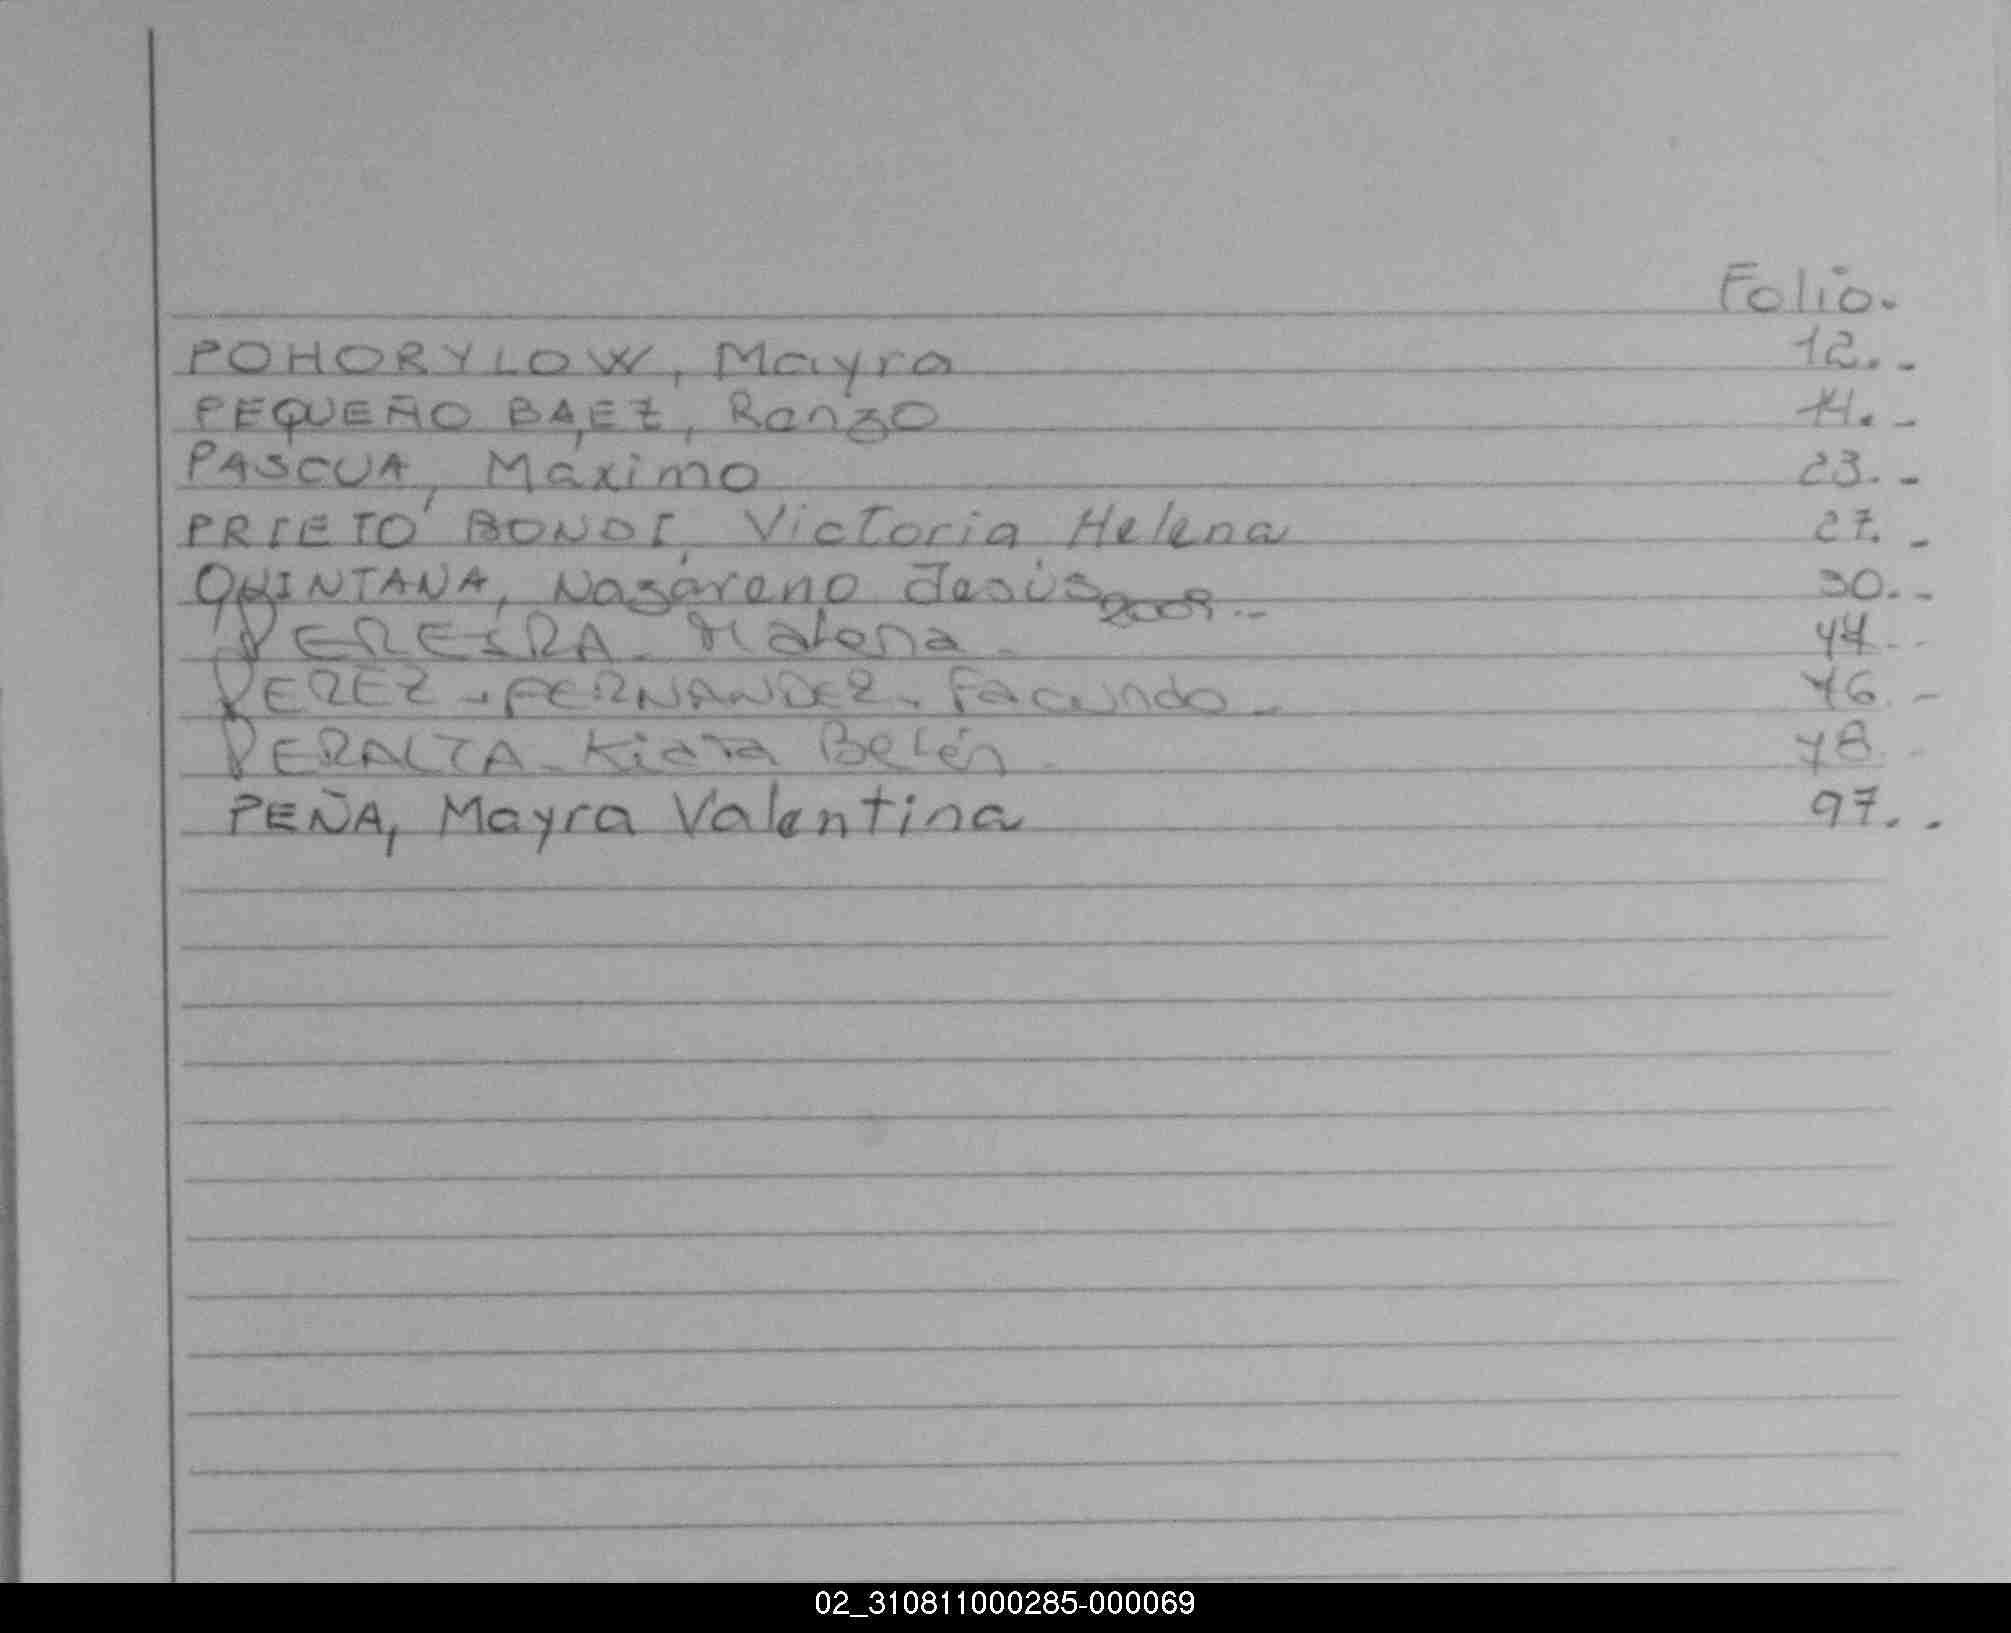 Folio.
POHORYLOW, Mayra 12.-
PEQUEÑO BAEZ, Renzo 14.-
PASCUA, Máximo 23.-
PRIETO BONDI, Victoria Helena 27.-
QUINTANA, Nazareno Jesús 2009.- 30.-
PEREIRA. Malena. 44.-
PEREZ - FERNANDEZ. Facundo. 46.-
PERALTA. Kiara Belén. 48.-
PEÑA, Mayra Valentina 97.-
02_310811000285-000069